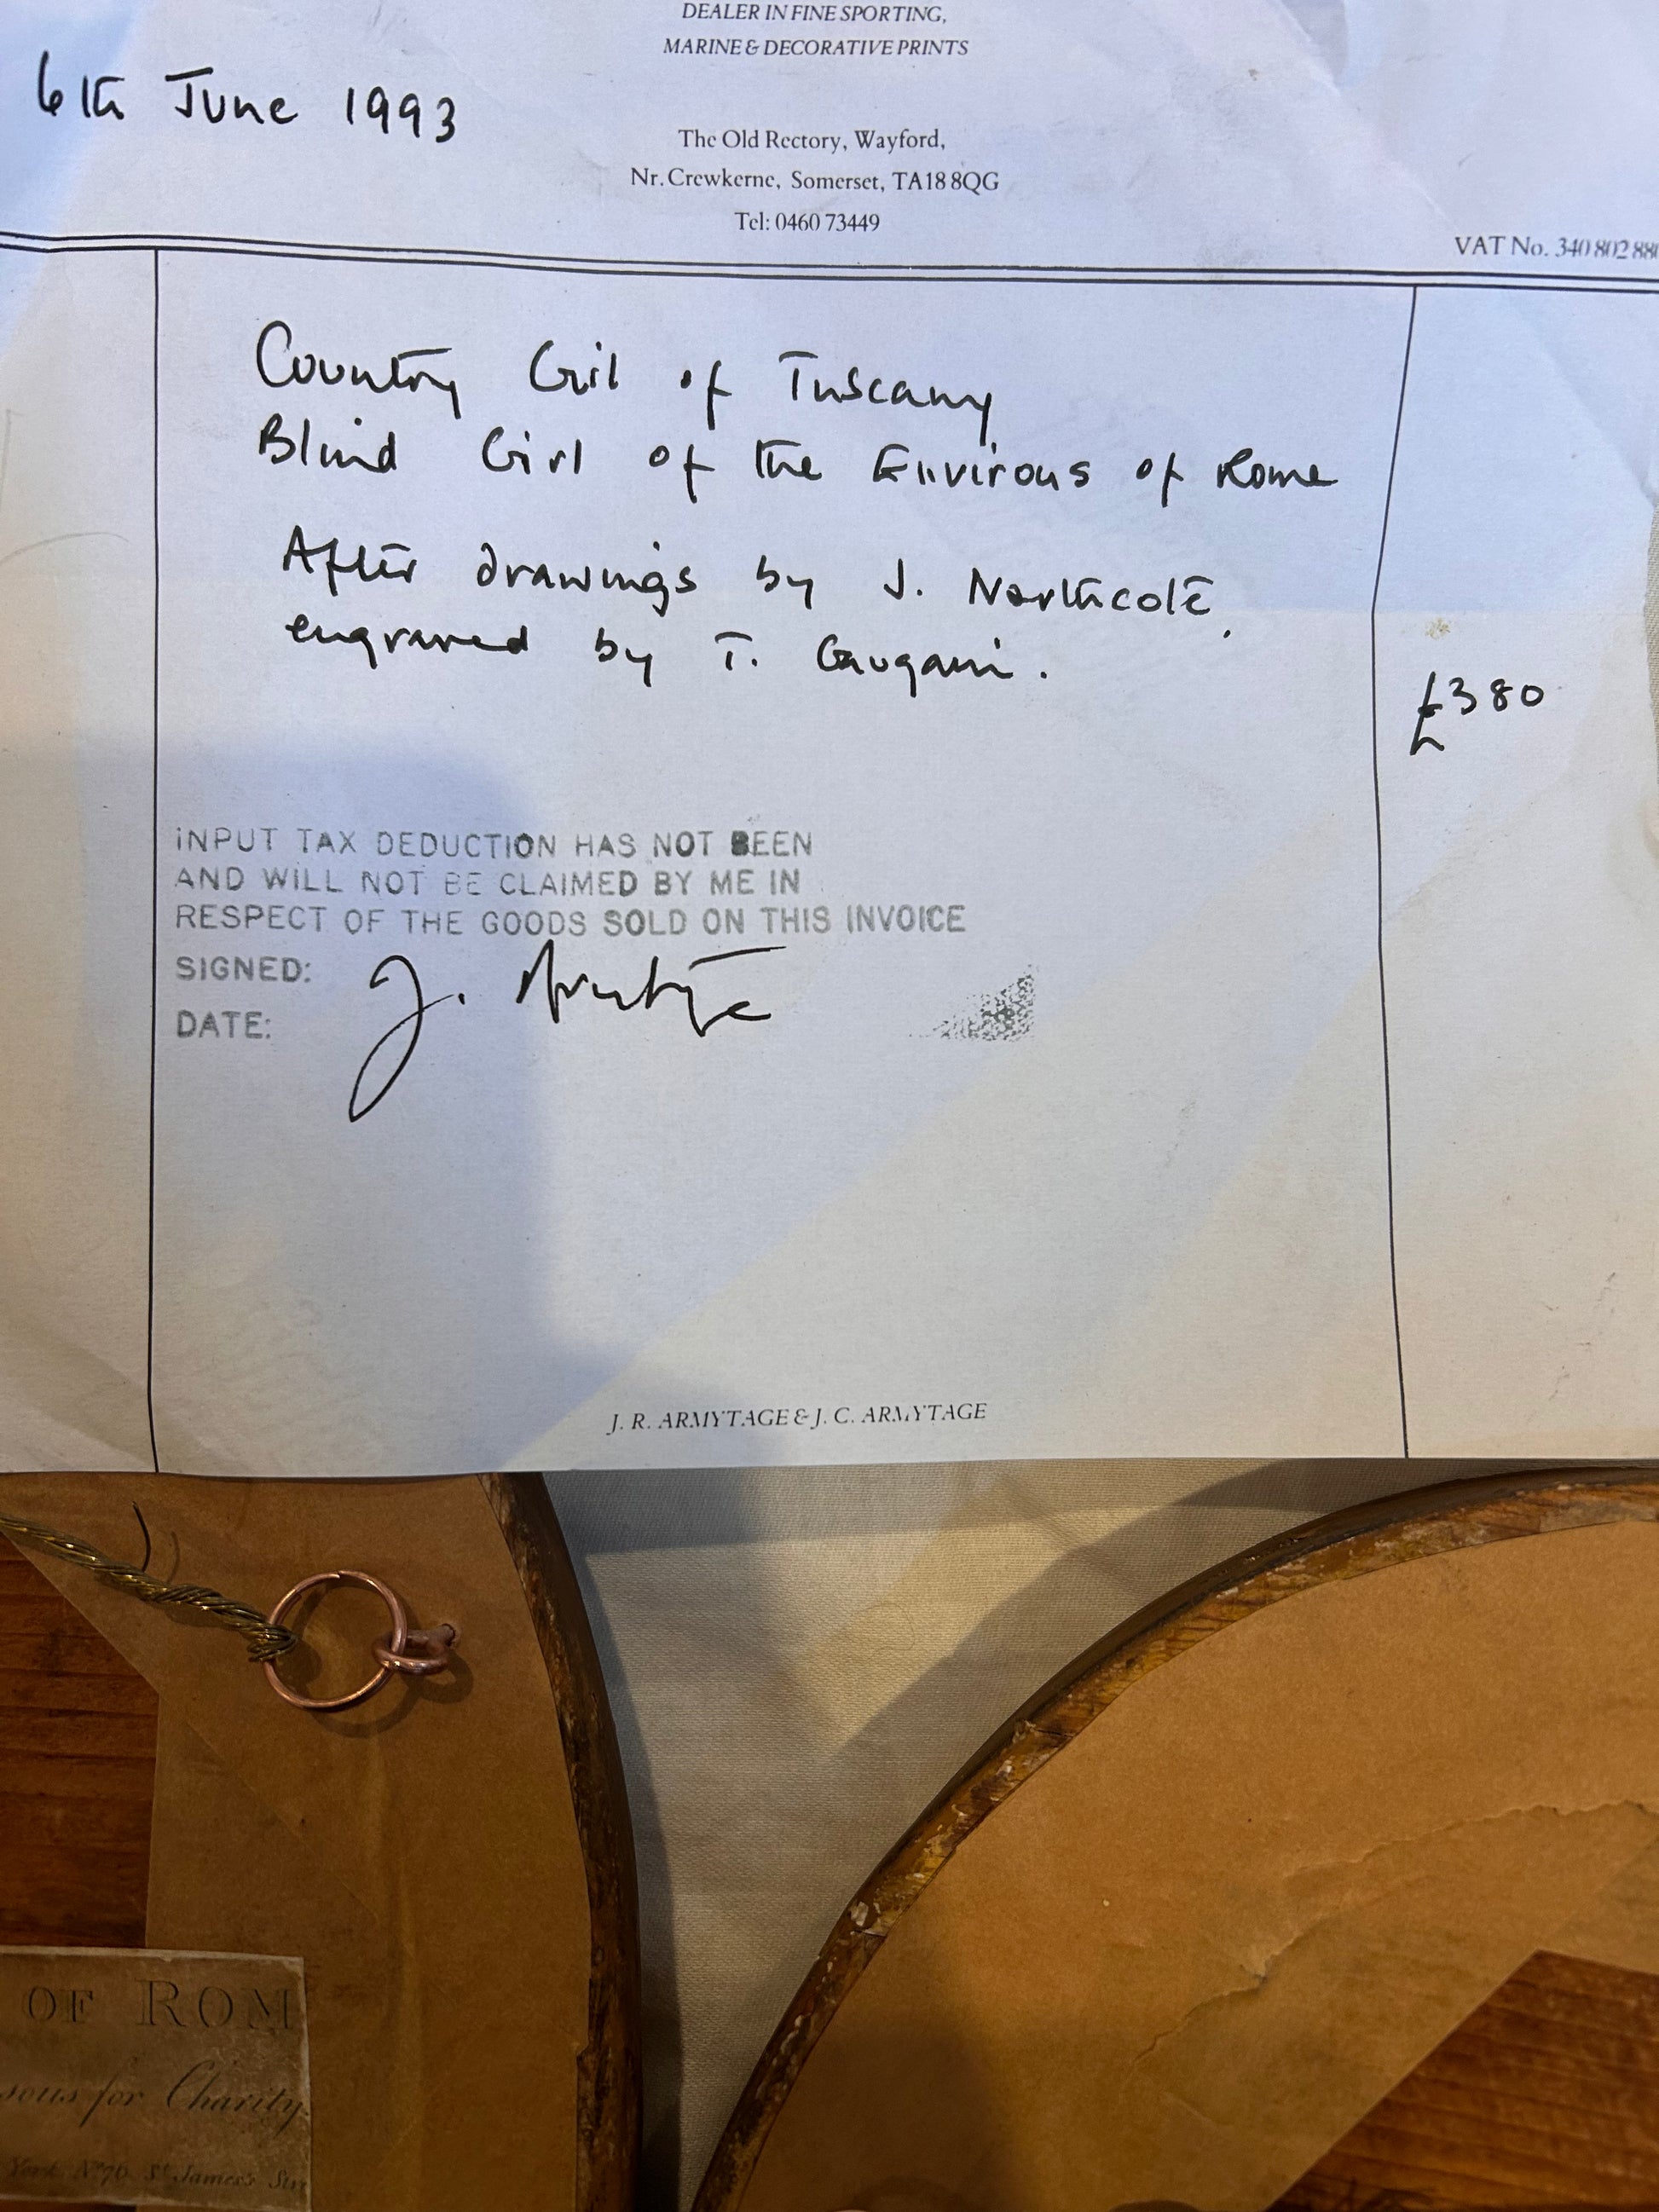 DEALER IN FINE SPORTING,
MARINE & DECORATIVE PRINTS
6th June 1993
The Old Rectory, Wayford,
Nr. Crewkerne, Somerset, TA18 8QG
Tel: 0460 73449
VAT No. 340 802 88
Country Girl of Tuscany
Blind Girl of the Environs of Rome
After drawings by J. Northcote,
engraved by T. Gaugain.
£380
INPUT TAX DEDUCTION HAS NOT BEEN
AND WILL NOT BE CLAIMED BY ME IN
RESPECT OF THE GOODS SOLD ON THIS INVOICE
SIGNED: J. Armytage
DATE:
J. R. ARMYTAGE & J. C. ARMYTAGE
OF ROM
sons for Charity
York Nº 76 St James's Str